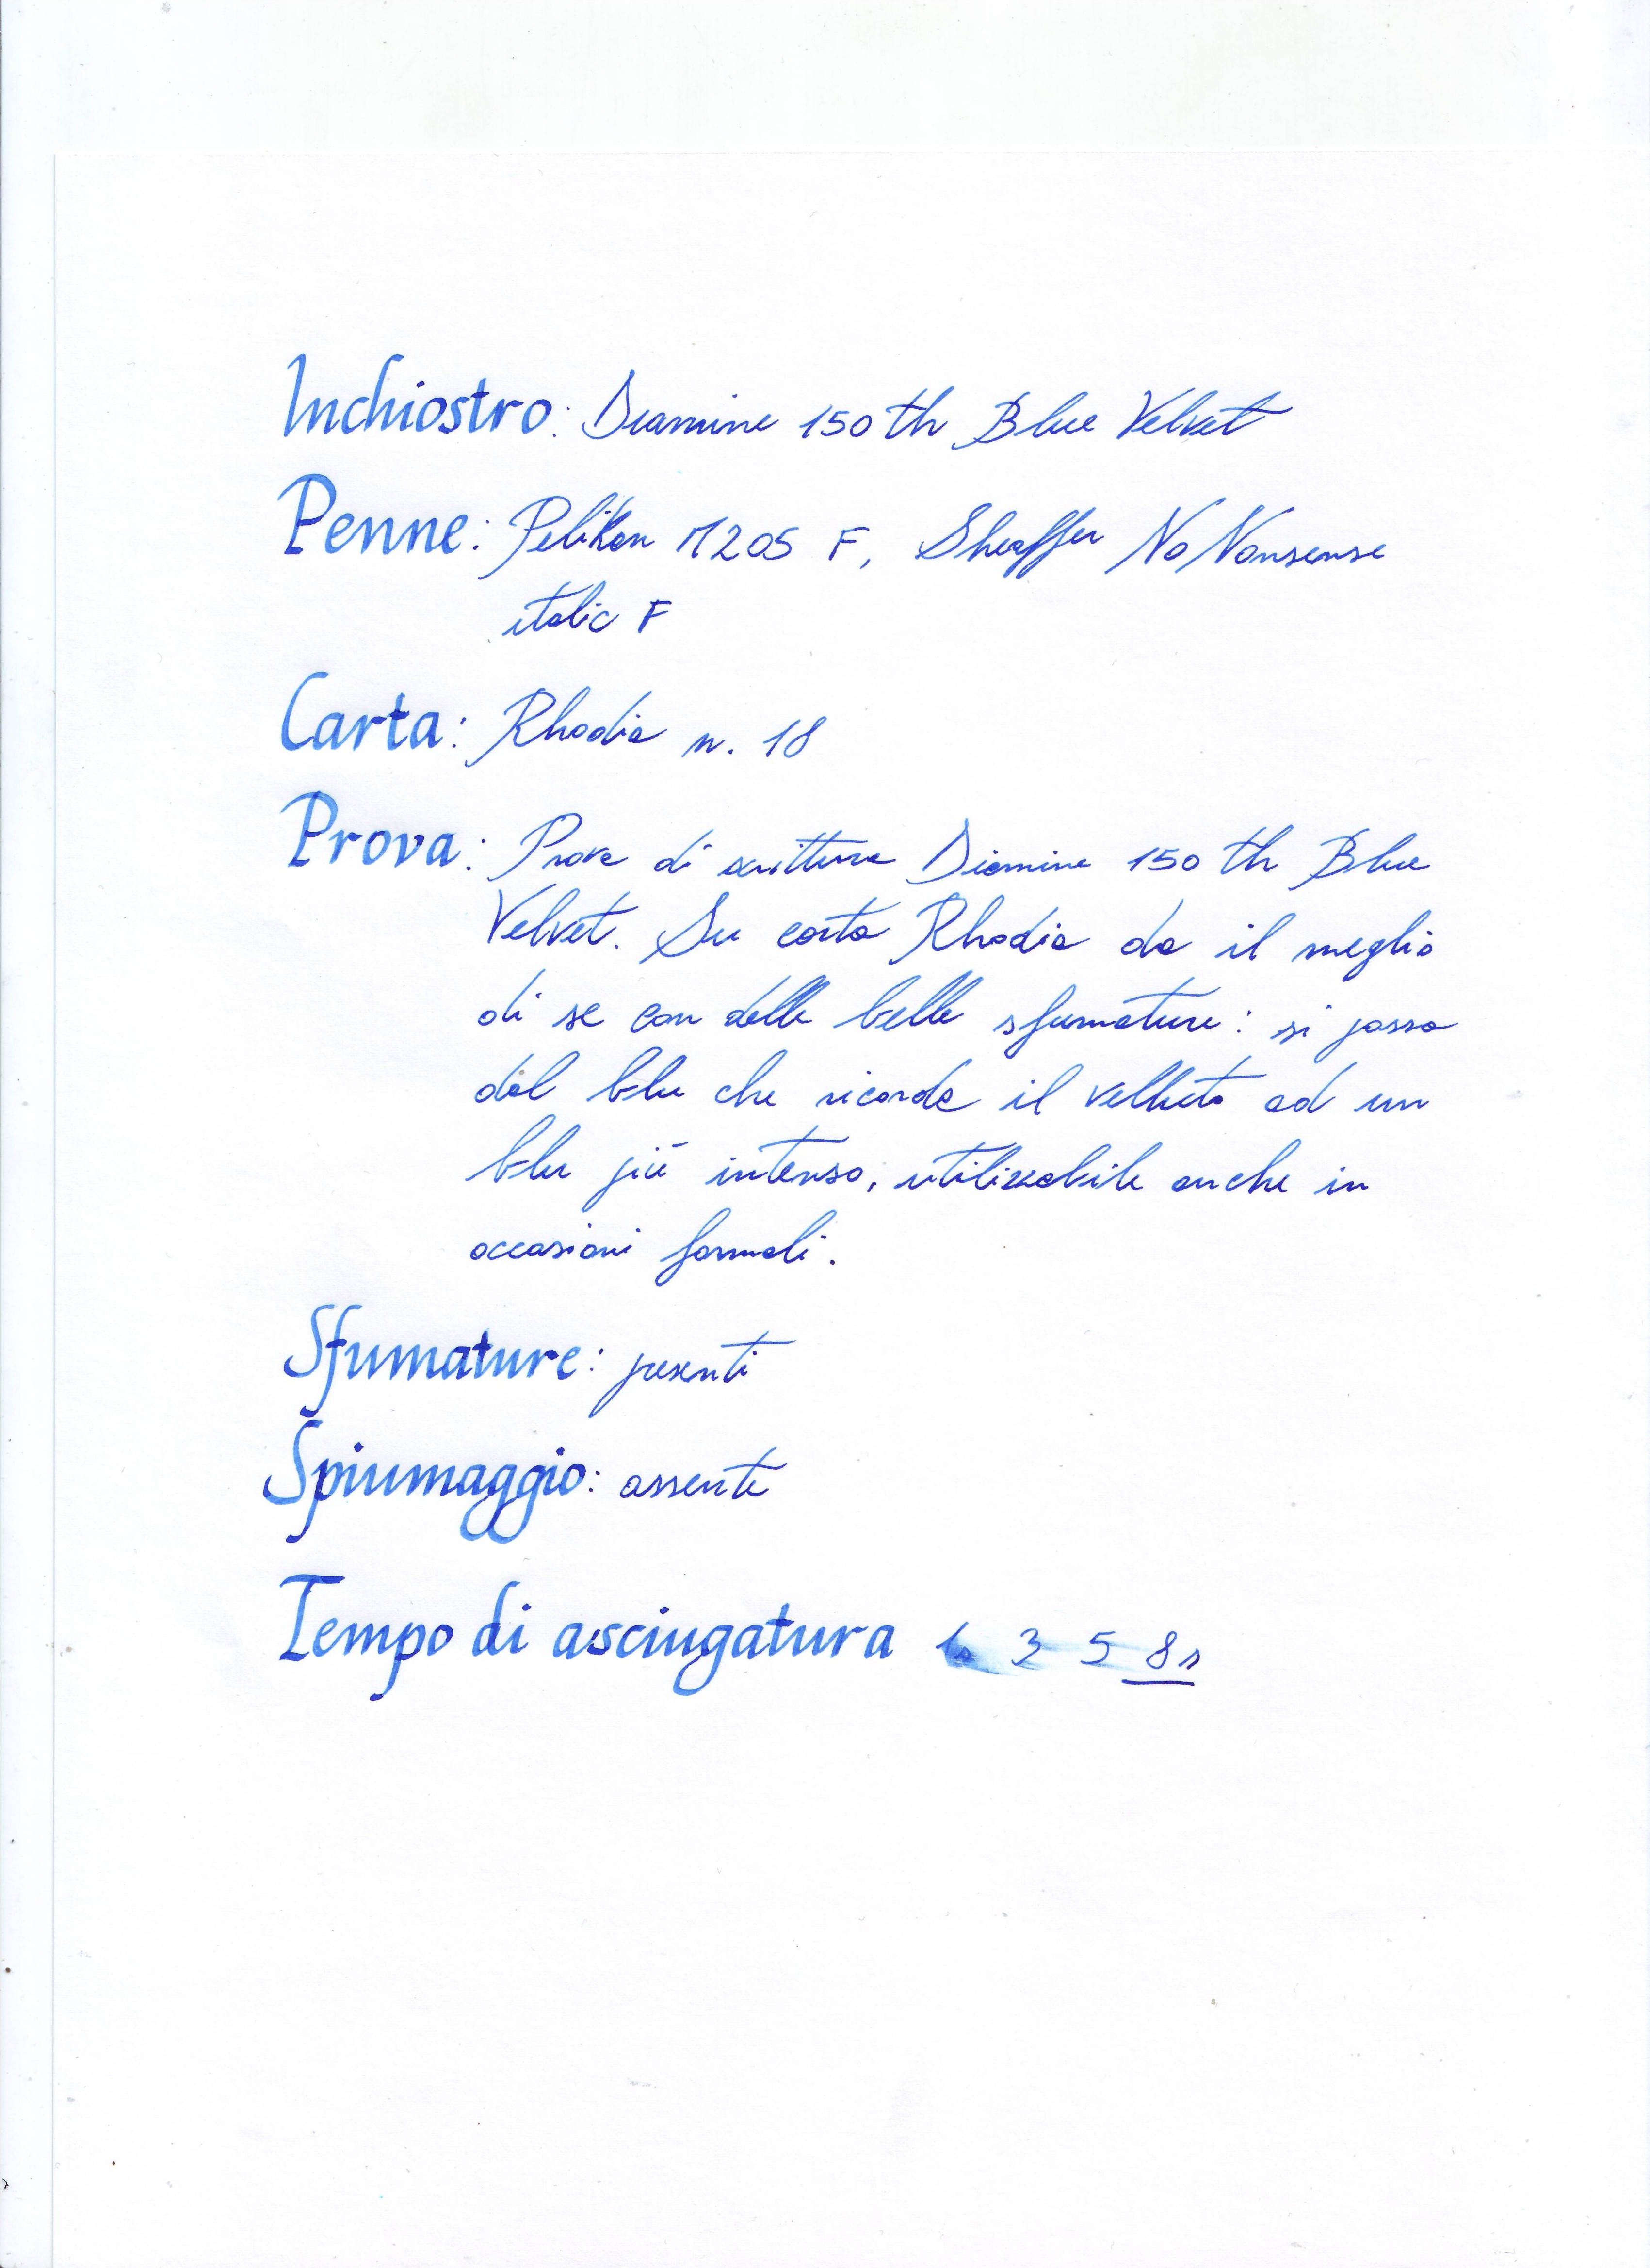 Inchiostro: Diamine 150th Blue Velvet
Penne: Pelikan M205 F, Sheaffer No Nonsense
italic F
Carta: Rhodia n. 18
Prova: Prova di scrittura Diamine 150th Blue
Velvet. Su carta Rhodia da il meglio
di se con delle belle sfumature: si passa
dal blu che ricorda il velluto ad un
blu più intenso, utilizzabile anche in
occasioni formali.
Sfumature: presenti
Spiumaggio: assente
Tempo di asciugatura 1s 3 5 8s